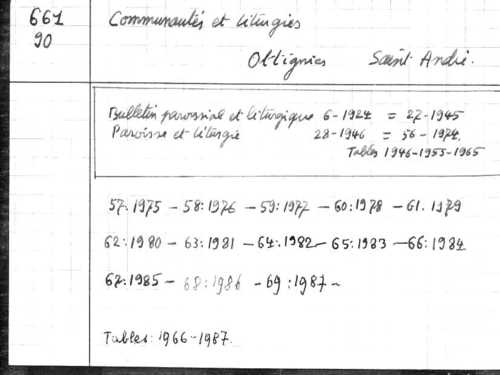 661
90
Communautés et liturgies
Ottignies Saint André.
Bulletin paroissial et liturgique 6-1924 = 27-1945
Paroisse et liturgie 28-1946 = 56-1974.
Tables 1946-1953-1965
57:1975 - 58:1976 - 59:1977 - 60:1978 - 61.1979
62:1980 - 63:1981 - 64:1982 - 65:1983 - 66:1984
67:1985 - 68:1986 - 69:1987 -
Tables: 1966-1987.